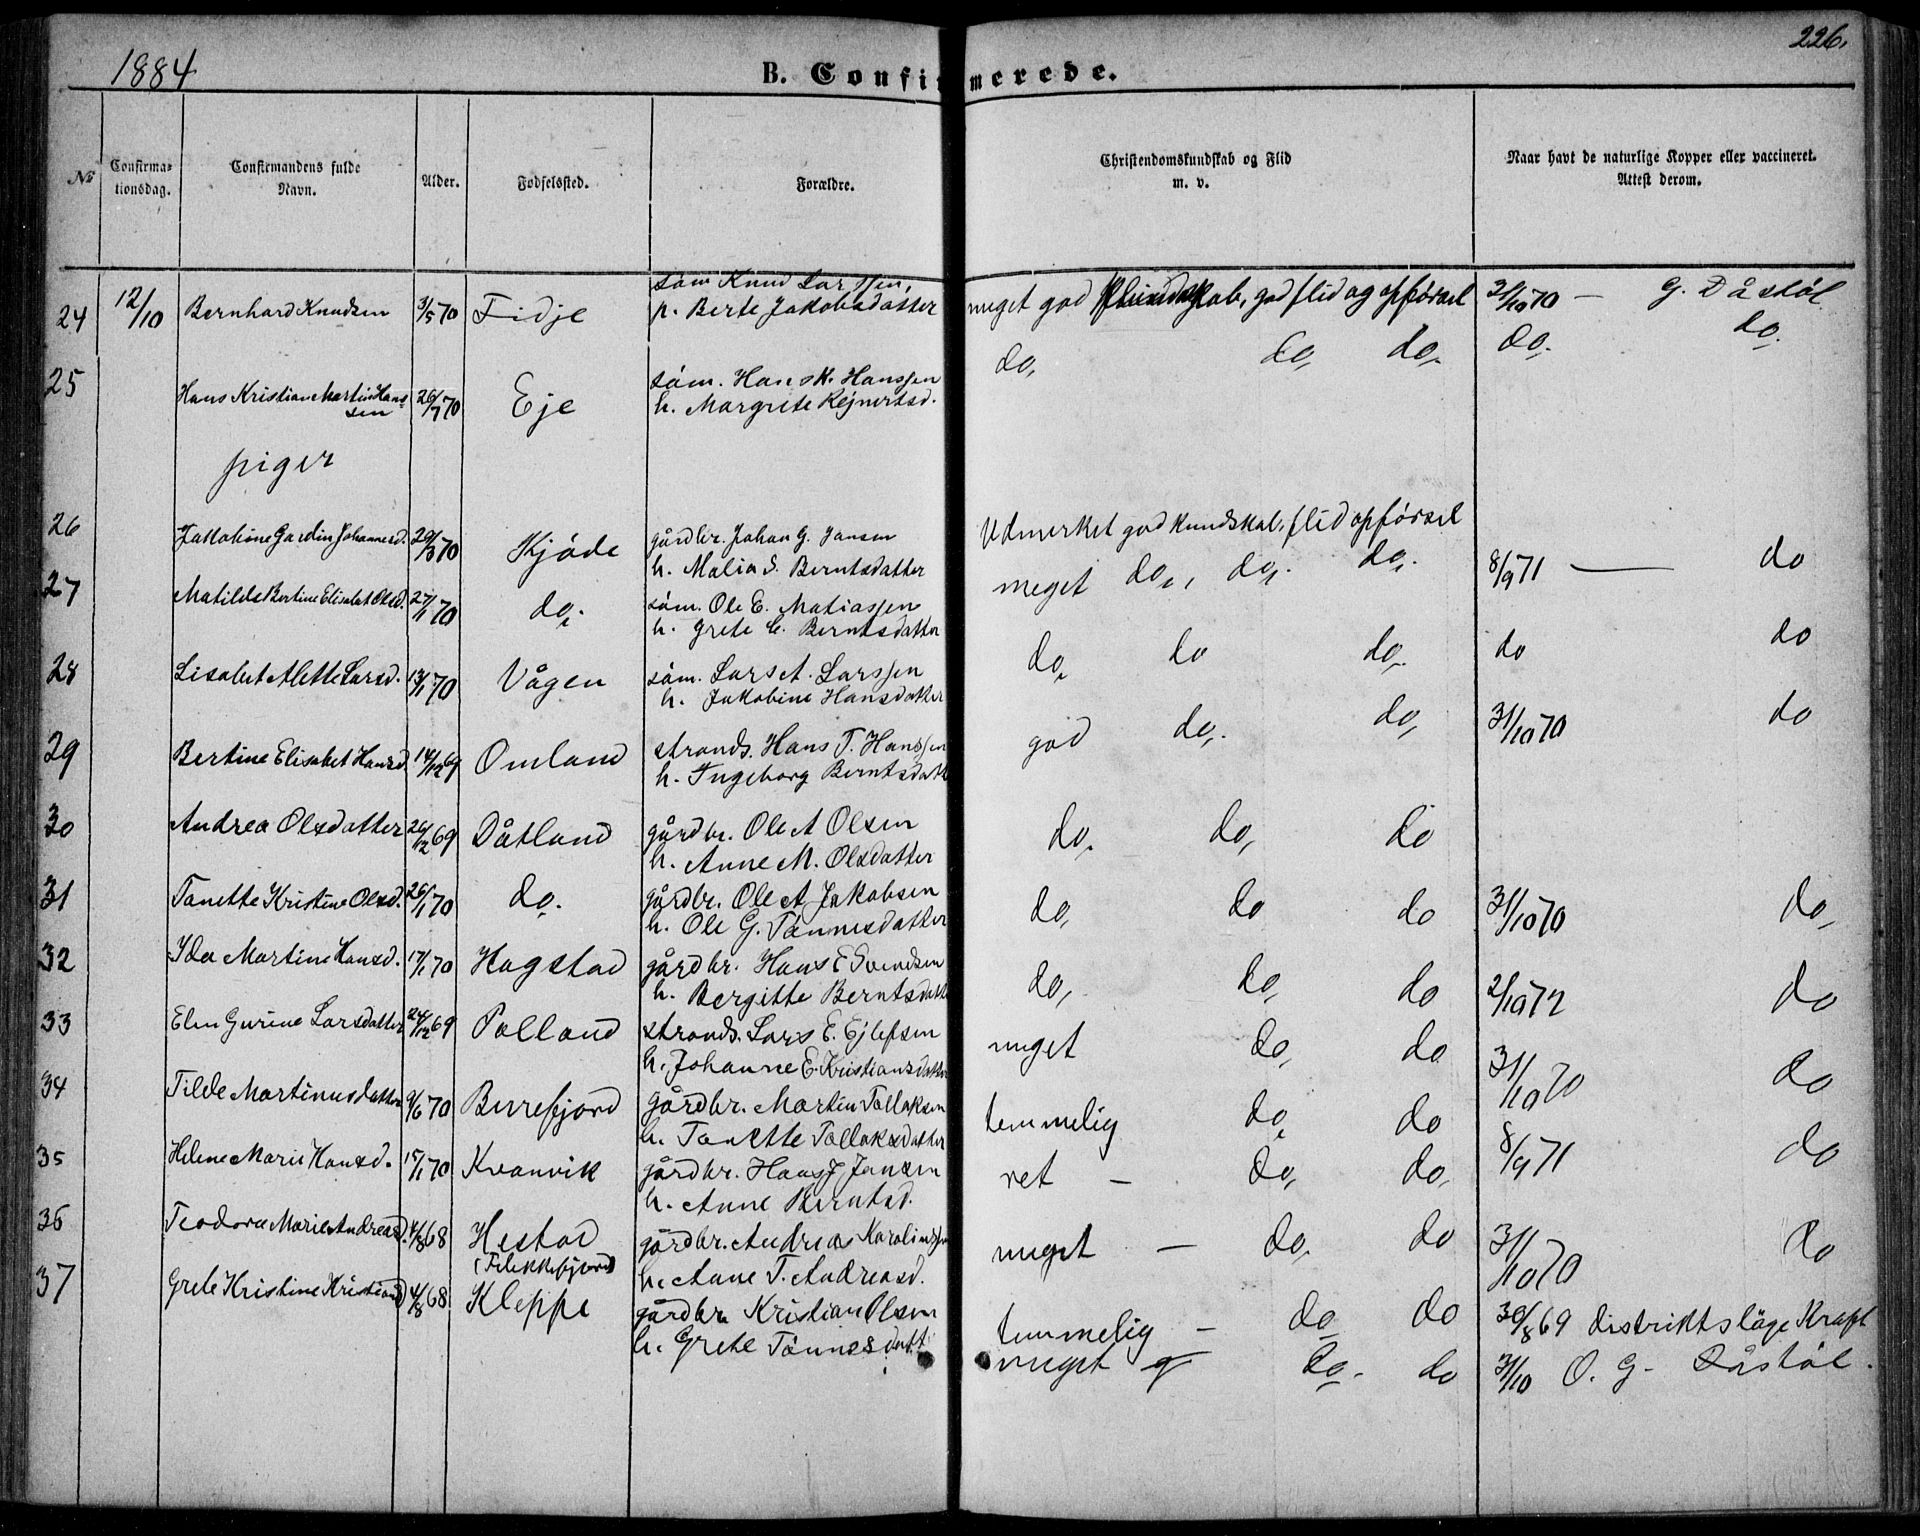 1884
226.
B. Confirmerede.
№
Confirmationsdag.
Confirmandens fulde Navn.
Alder.
Fødselssted.
Forældre.
Christendomskundskab og Flid m. v.
Naar havt de naturlige Kopper eller vaccineret. Attest derom.
24 12/10 Bernhard Knudsen 3/5 70 Fidje søm Knud Larssen, meget god kundskab, god flid og opførsel 31/10 70 — G. Dåstøl
h. Berte Jakobsdatter
25 Hans Kristian Martin Hanssen 26/7 70 Eje søm. Hans K. Hanssen do, do, do. do. do.
h. Margrete Rejnertsd.
piger
26 Jakobine Johannesd. 29/3 70 Kjøde gårdbr. Johan G. Jansen Udmerket god kundskab, flid opførsel
h. Malia S. Berntsdatter
27 Matilde Bertine Elisabet Olsd. 27/1 70 do. søm. Ole E. Matiassen meget do, do. do. 8/9 71 — do
h. Grete C. Berntsdatter
28 Lisabet Alette Larsd. 13/1 70 Vågen søm. Lars A. Larssen do, do do. do do
h. Jakobine Hansdatter
29 Bertine Elisabet Hansd 14/12 69 Omland strands. Hans T. Hanssen god do. do, 31/10 70 do
h. Ingeborg Berntsdatt
30 Andrea Olsdatter 26/12 69 Dåtland gårdbr. Ole A Olsen do. do, do
h. Anne M. Olsdatter
31 Tanette Kristine Olsd. 26/1 70 do. gårdbr. Ole A Jakobsen do, do do 31/10 70 do,
h. Ole G. Tønnesdatter
32 Ida Martine Hansd. 17/1 70 Hagstad gårdbr. Hans E Svendsen do, do, do 2/10 72 do
h. Bergitte Berntsdatt
33 Elen Gurine Larsdatter 24/12 69 Polland strands. Lars E. Ejlefsen meget do, do 31/10 70 do
h. Johanne E. Kristiansdatter
34 Tilde Martinusdatter 9/6 70 Berrefjord gårdbr. Martin Tallaksen temmelig do, do 8/9 71 do
h. Tanette Tallaksdatter
35 Helene Marie Hansd. 15/1 70 Kvanvik gårdbr. Hans J Jansen ret — do, do,
h. Anne Berntsd.
36 Teodora Marie Andreasd. 4/8 68 Hestad gårdbr. Andreas Karolinssen meget — do. do 31/10 70 do
(Flekkefjord) h. Anne T. Andreasd.
37 Grete Kristine Kristiansd 4/8 68 Kleppe gårdbr Kristian Olsen temmelig — do do 30/8 69 distriktsläge Kraft
h. Grete Tønnesdatt meget do. do 31/10 O. G. Dåstøl.